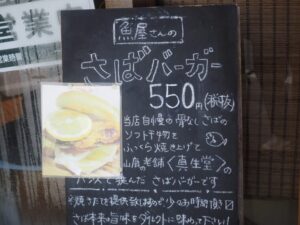 営業中
魚屋さんの
さばバーガー
550円(税抜)
当店自慢の骨なしさばの
ソフト干物を
ふっくら焼き上げて
山鹿の老舗《真生堂》の
パンで挟んだ さばバーガーです
焼きたてを提供致します 少々お時間頂き
さば本来の旨味をダイレクトに味わって下さい!